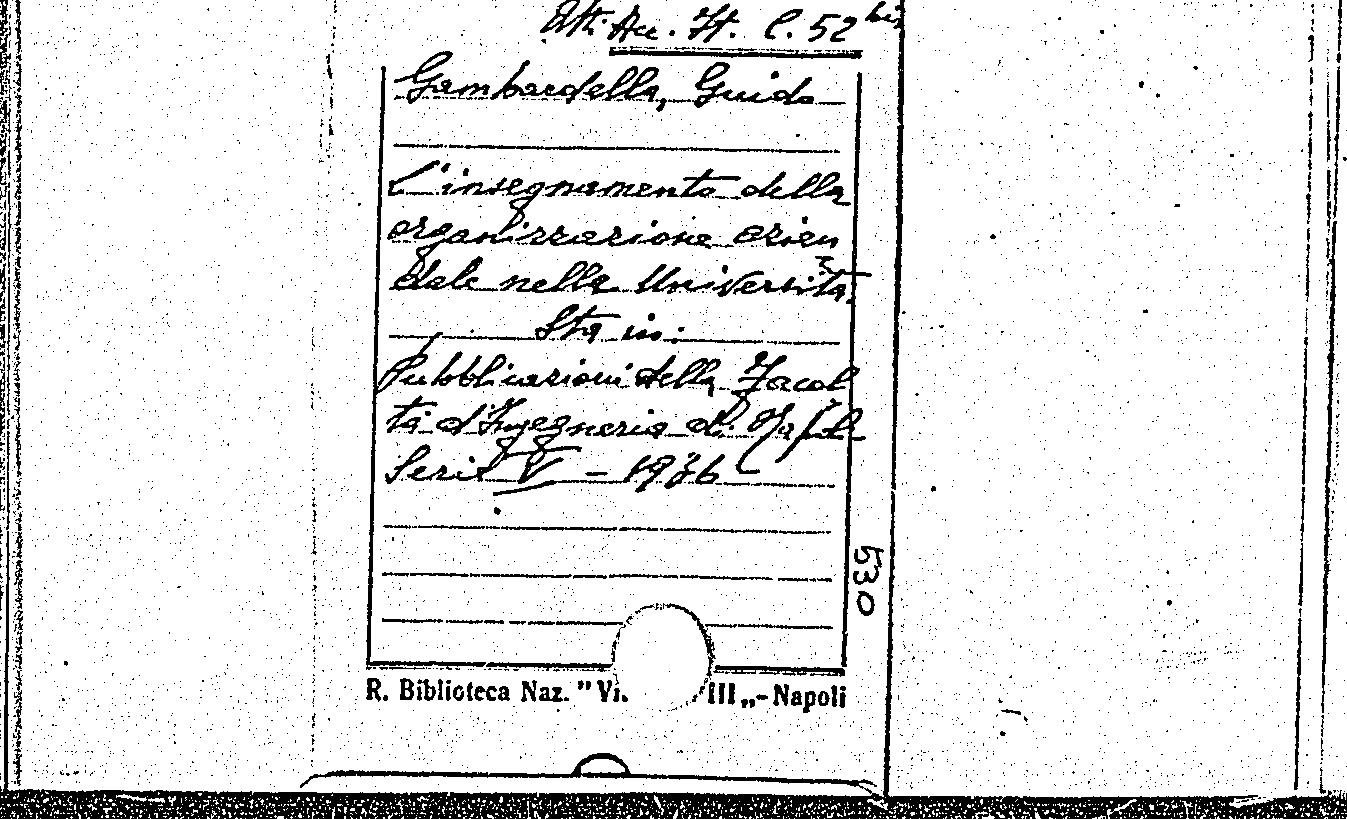 Atti Acc. It. C. 52 bis
Gambardella, Guido
L'insegnamento della
organizzazione azien
dale nella Università.
Sta in:
Pubblicazioni della Facol
tà d'Ingegneria di Napoli
Serie V - 1936
530
R. Biblioteca Naz. " Vi. III „ - Napoli